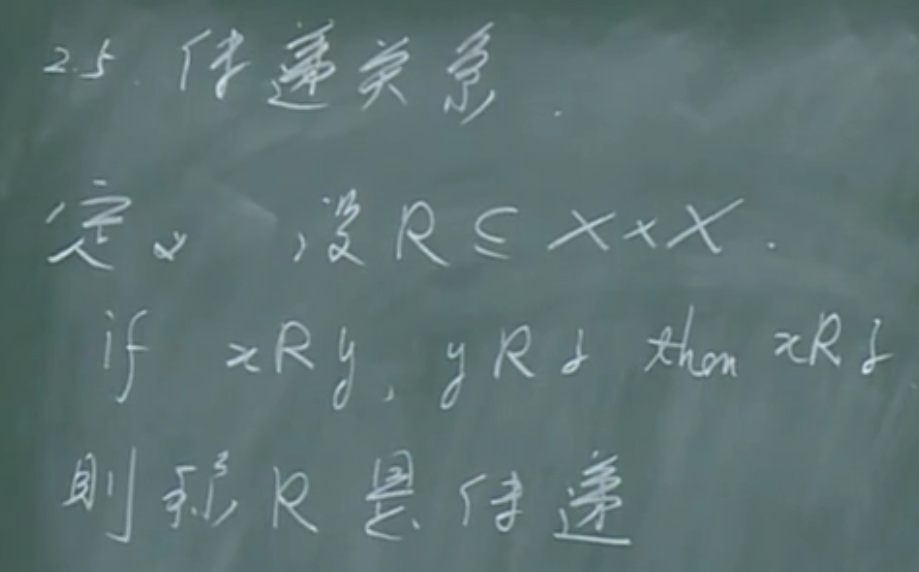 2.5. 传递关系.
定义 设 R ⊆ X×X.
if xRy, yRz then xRz
则称 R 是传递